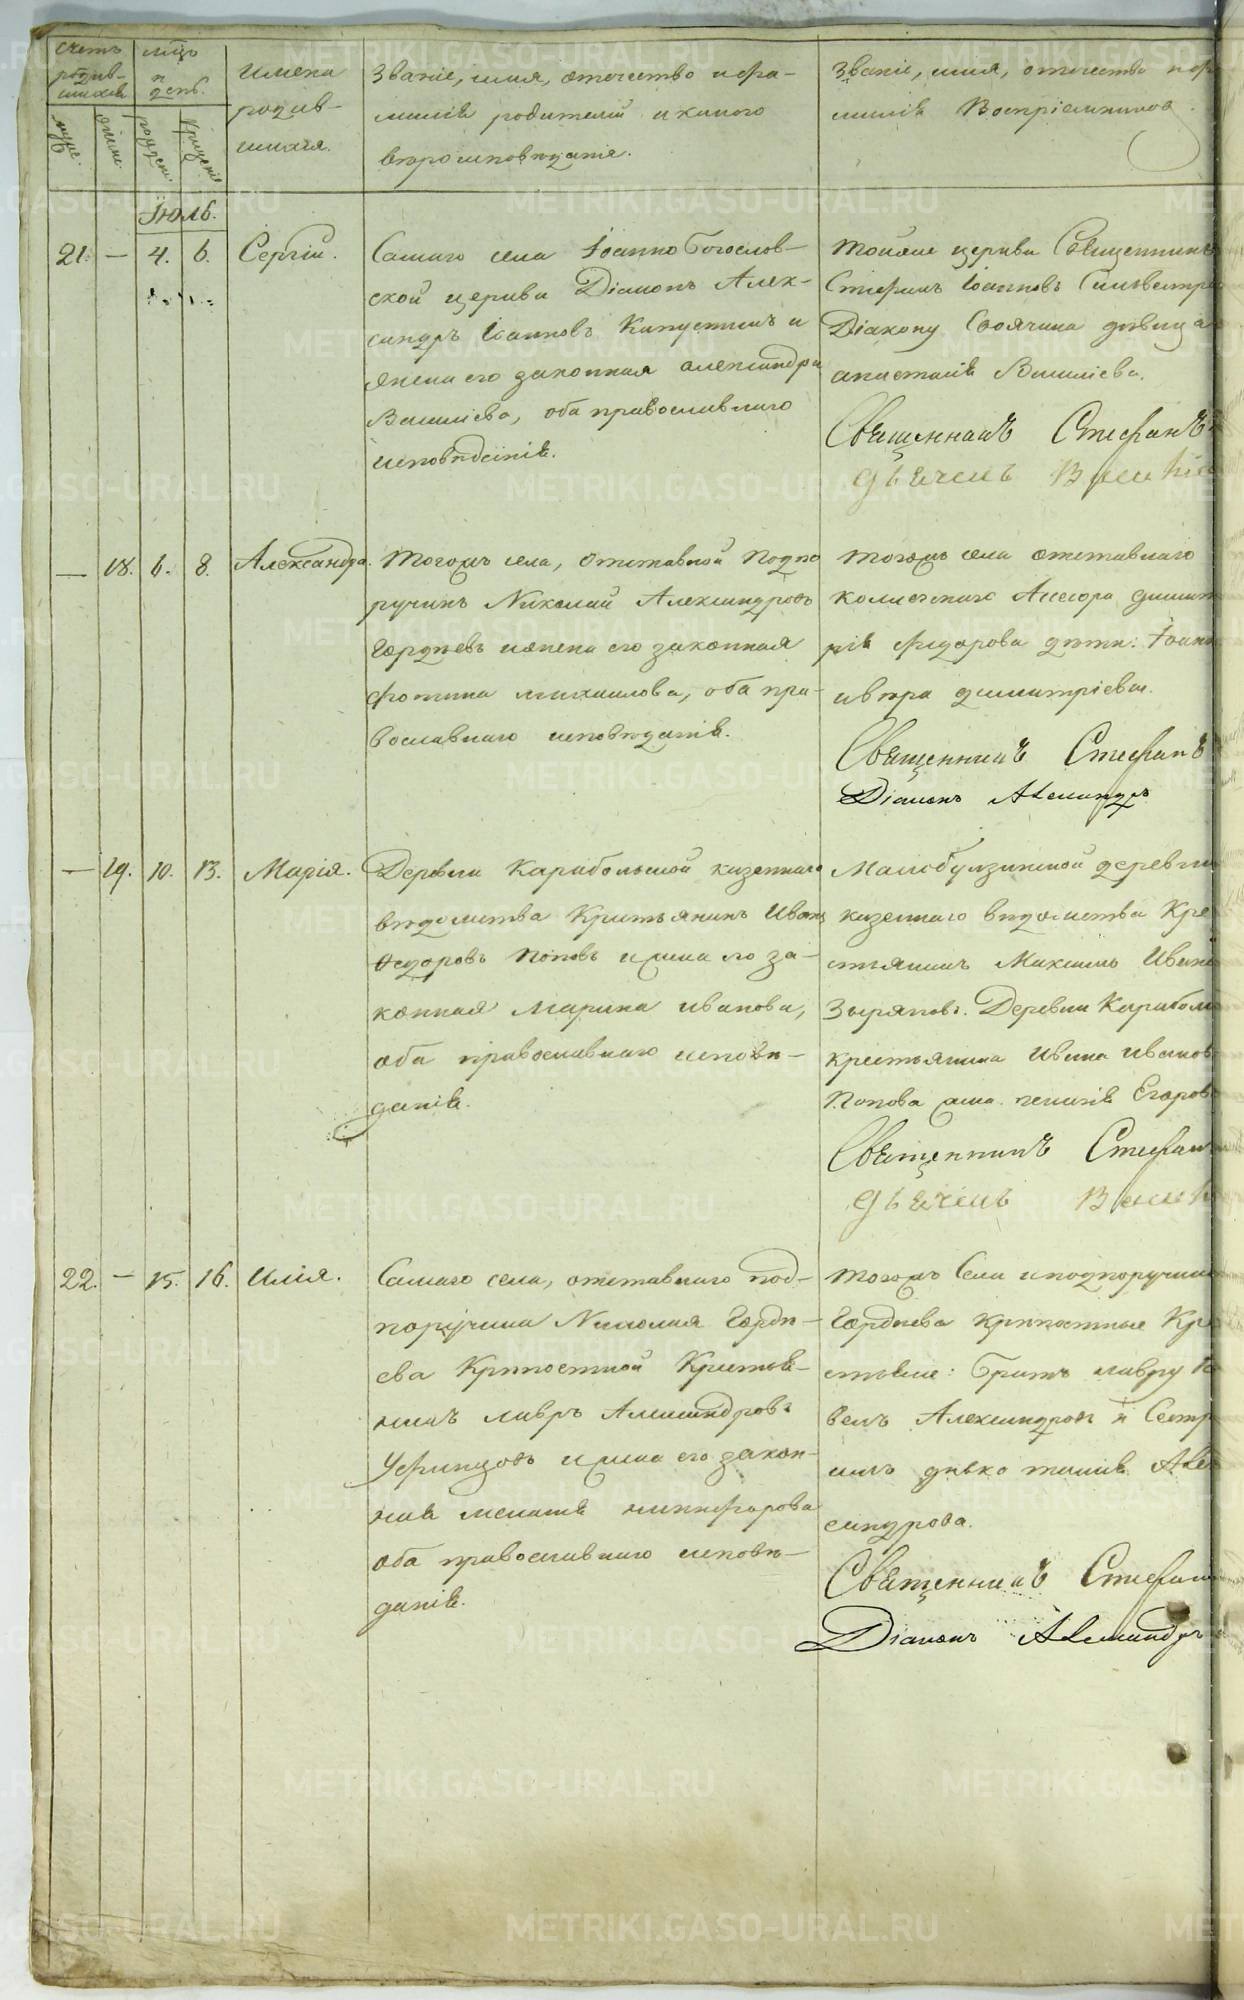 Счетъ родив-шихся
мѣсяцъ и день.
имена родив-шихся.
Званіе, имя, отечество и фа-
миліи родителей и какого
вѣроисповѣданія.
Званіе, имя, отечество и фа
миліи Воспріемниковъ.
муже.
женс.
рожден.
крещенія
Іюль.
21. — 4. 6. Сергій.
Самаго села Іоанно Богослов-
ской церкви Діаконъ Алек-
сандръ Іоанновъ Капустинъ и
жена его законная александра
Василіева, оба православнаго
исповѣданія.
тойже церкви Священникъ
Стефанъ Іоанновъ Сильвестро
Діакону Своячина дѣвица
анастасія Василіева.
Священникъ Стефанъ
— 18. 6. 8. Александра.
Тогожъ села, отставной Подпо
ручикъ Николай Александровъ
Гордѣевъ и жена его законная
фотина михаилова, оба пра-
вославнаго исповѣданія.
тогожъ села отставнаго
коллежскаго Ассесора димит
рія Федорова дѣти: Іоанн
и вѣра димитріевы.
Священникъ Стефанъ
Діаконъ Александръ
— 19. 10. 13. Марія.
Деревни Карабольской казеннаго
вѣдомства Крестьянинъ Иванъ
Ѳедоровъ Поповъ и жена его за-
конная Марина иванова,
оба православнаго исповѣ-
данія.
деревни
казеннаго вѣдомства Кре
стьянинъ Максимъ Ивано
Зыряновъ. Деревни Карабол
крестьянина Ивана Иванов
Попова жена Егоров
Священникъ Стефан
22. — 15. 16. Илія.
Самаго села, отставнаго под-
поручика Николая Гордѣ-
ева Крѣпостной Крестья-
нинъ лавръ Александровъ
Уфинцовъ и жена его закон-
ная меланія никифорова
оба православнаго исповѣ-
данія.
тогожъ Села и подпоручика
Гордѣева крѣпостные Кре
стьяне: Братъ лавру
Александровъ и Сестр
Але
ксандрова.
Священникъ Стефан
Діаконъ Александръ
METRIKI.GASO-URAL.RU